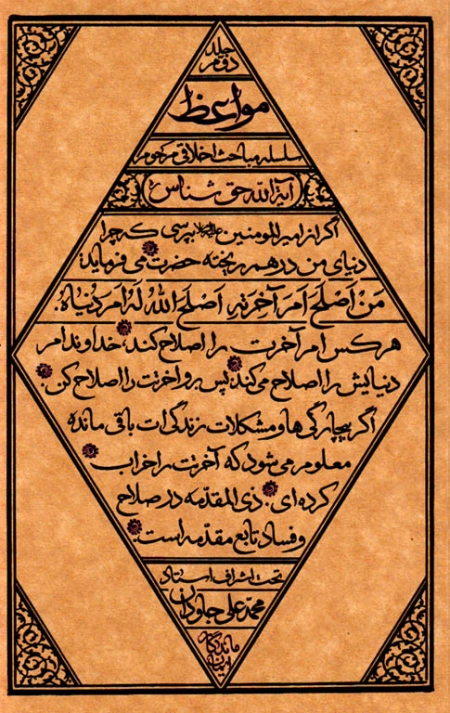 جلد
دوم
مواعظ
سلسله مباحث اخلاقی مرحوم
آیة الله حق شناس
اگر از امیرالمومنین علیه السلام بپرسی که چرا
دنیای من درهم ریخته حضرت می فرماید:
مَنْ اَصْلَحَ اَمرَ آخرتِهِ اَصْلَحَ اللهُ لَهُ اَمرَ دُنیاهُ:
هر کس امر آخرت را اصلاح کند، خداوند امر
دنیایش را اصلاح می کند، پس برو اخرتت را اصلاح کن.
اگر بیچارگی ها و مشکلات زندگی ات باقی مانده
معلوم می شود که آخرتت را خراب
کرده ای. ذی المقدّمه در صلاح
و فساد تابع مقدّمه است.
تحت اشراف استاد
محمدعلی جاودان
ماندگار